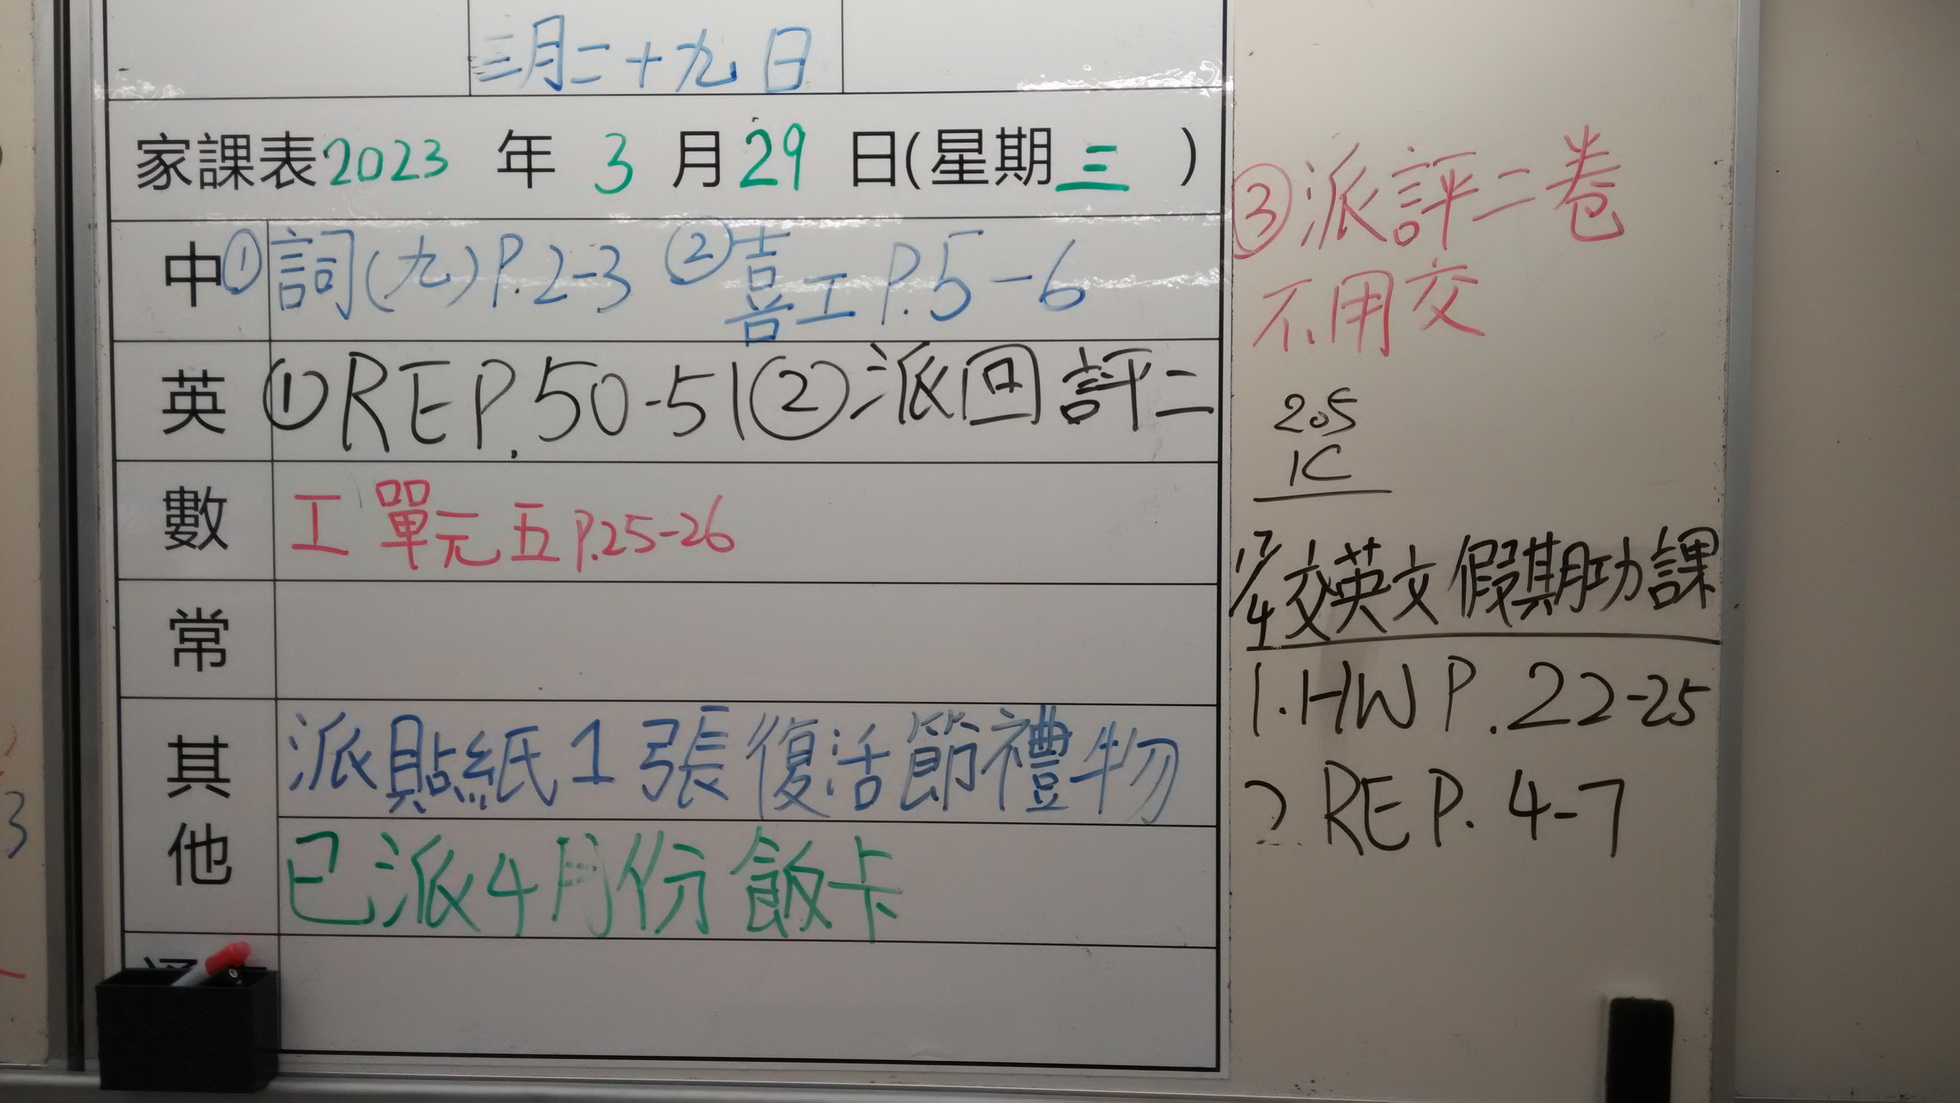 三月二十九日
家課表2023年3月29日(星期三)
中 ①詞(九)P.2-3 ②喜工P.5-6
英 ①REP.50-51②派回評二
數 工單元五P.25-26
常
其他 派貼紙1張復活節禮物
已派4月份飯卡
③派評二卷
不用交
205
1C
17/4交英文假期功課
1.HW P.22-25
2.RE P.4-7